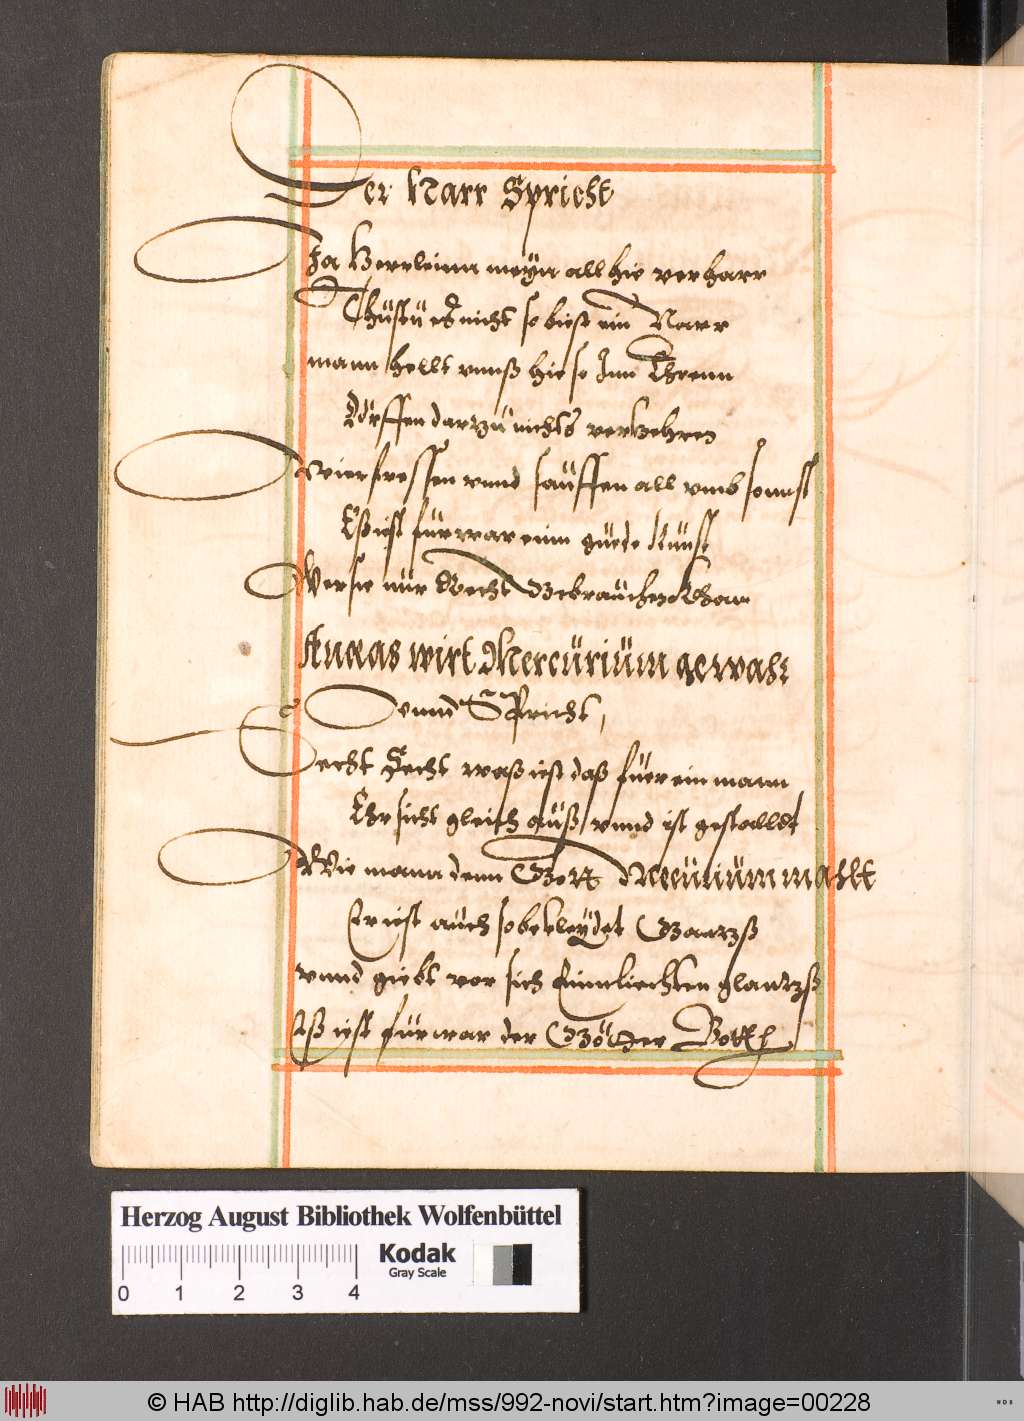 Der Narr Spricht
Ja Herrleinn meyn all hie verharr
Thüstu es nicht so bist ein Narr
mann hellt vnnß hie so Inn Ehrenn
Dörffen darzu nichts verkehren
Wier fressen vnnd sauffen all vmb sonnst
Eß ist fürwar einn guede Kunst
Wer sie nür Recht Gebrauchen khan
Aneas wirt Mercürium gewahr
Vnnd Spricht,
Secht Secht waß ist daß füer ein mann
Ehr sicht gleich auß vnnd ist gestalldt
Wie mann denn Gott Mercürium mahlt
Er ist auch so bekleydet Gantzß
vnnd giebt vor sich Einn liechten glantzß
Eß ist fürwar der Götter Bott
Herzog August Bibliothek Wolfenbüttel
Kodak
Gray Scale
0 1 2 3 4
© HAB http://diglib.hab.de/mss/992-novi/start.htm?image=00228